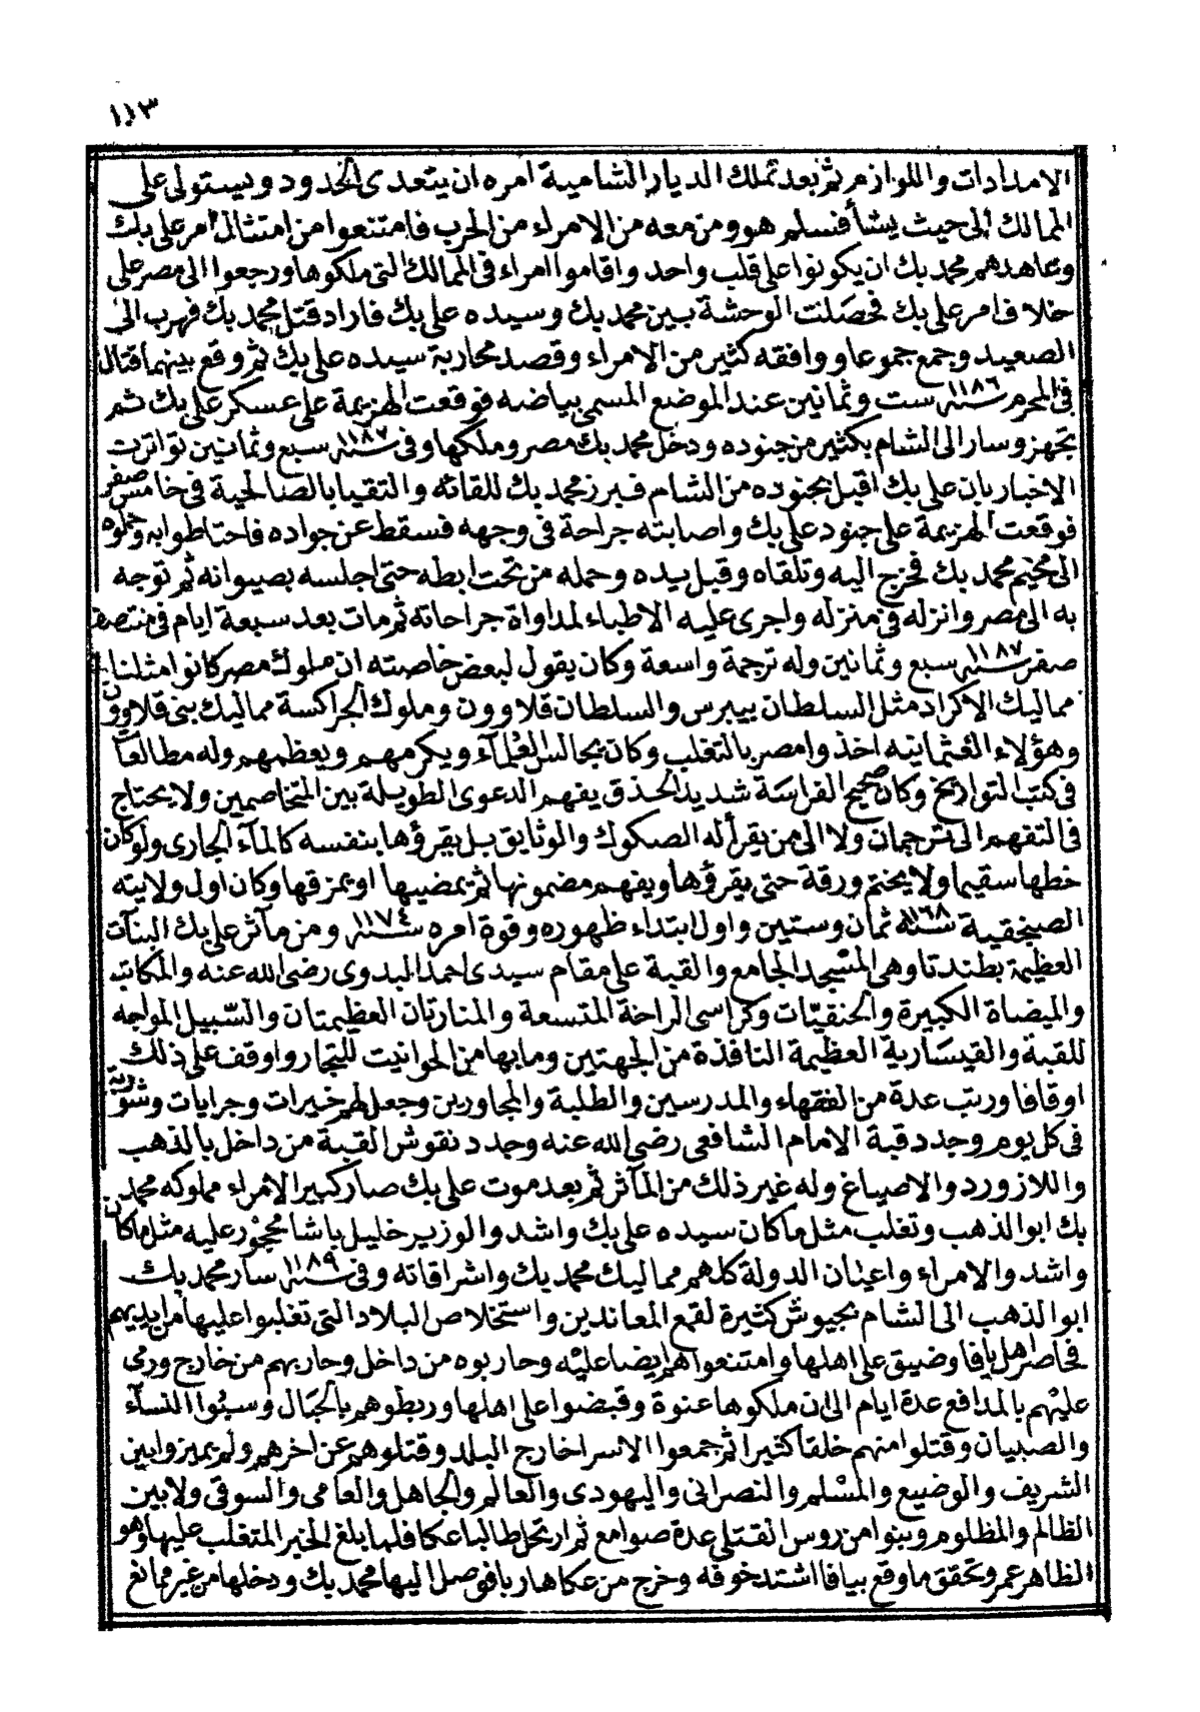 ١١٣
الامدادات واللوازم ثم بعد تملك الديار الشامية امره ان يتعدى الحدود ويستولى على
الممالك الى حيث يشأ فنسلم هو ومن معه من الامراء من الحرب فامتنعوا من امتثال امر على بك
وعاهدهم محمد بك ان يكونوا على قلب واحد واقاموا امراء فى الممالك التى ملكوها ورجعوا الى مصر على
خلاف امر على بك فحصلت الوحشة بين محمد بك وسيده على بك فاراد قتل محمد بك فهرب الى
الصعيد وجمع جموعا ووافقه كثير من الامراء وقصد محاربة سيده على بك ثم وقع بينهما قتال
فى المحرم سنة ١١٨٦ ست وثمانين عند الموضع المسمى بياضه فوقعت الهزيمة على عسكر على بك ثم
تجهز وسار الى الشام بكثير من جنوده ودخل محمد بك مصر وملكها وفى سنة ١١٨٧ سبع وثمانين تواترت
الاخبار بان على بك اقبل بجنوده من الشام فبرز محمد بك للقائه والتقيا بالصالحية فى خامس صفر
فوقعت الهزيمة على جنود على بك واصابته جراحة فى وجهه فسقط عن جواده فاحتاطوا به وحملوه
الى مخيم محمد بك فخرج اليه وتلقاه وقبل يده وحمله من تحت ابطه حتى اجلسه بصيوانه ثم توجه
به الى مصر وانزله فى منزله واجرى عليه الاطباء لمداواة جراحاته ثم مات بعد سبعة ايام فى منتصف
صفر سنة ١١٨٧ سبع وثمانين وله ترجمة واسعة وكان يقول لبعض خاصته ان ملوك مصر كانوا مثلنا
مماليك الاكراد مثل السلطان بيبرس والسلطان قلاوون وملوك الجراكسة مماليك بنى قلاوون
وهؤلاء العثمانيه اخذوا مصر بالتغلب وكان يجالس العلمآء ويكرمهم ويعظمهم وله مطالعات
فى كتب التواريخ وكان صحيح الفراسة شديد الحذق يفهم الدعوى الطويلة بين المتخاصمين ولا يحتاج
فى التفهم الى ترجمان ولا الى من يقرأ له الصكوك والوثايق بل يقرؤها بنفسه كالمآء الجارى ولو كان
خطها سقيما ولا يختم ورقة حتى يقرؤها ويفهم مضمونها ثم يمضيها او يمزقها وكان اول ولايته
الصنجقية سنة ١١٦٨ ثمان وستين واول ابتداء ظهوره وقوة امره سنة ١١٧٤ ومن مآثر على بك البنآت
العظيمة بطندتا وهى المسجد الجامع والقبة على مقام سيدى احمد البدوى رضى الله عنه والمكاتب
والميضاة الكبيرة والحنفيات وكراسى الراحة المتسعة والمنارتان العظيمتان والسبيل المواجه
للقبة والقيسارية العظيمة النافذة من الجهتين وما بها من الحوانيت للتجار واوقف على ذلك
اوقافا ورتب عدة من الفقهاء والمدرسين والطلبة والمجاورين وجعل لهم خيرات وجرايات وشوربة
فى كل يوم وجدد قبة الامام الشافعى رضى الله عنه وجدد نقوش القبة من داخل بالذهب
واللازورد والاصباغ وله غير ذلك من المآثر ثم بعد موت على بك صار كبير الامراء مملوكه محمد
بك ابو الذهب وتغلب مثل ما كان سيده على بك واشد والوزير خليل باشا محجور عليه مثل ما كان
واشد والامراء واعيان الدولة كلهم مماليك محمد بك واشراقاته وفى سنة ١١٨٩ سار محمد بيك
ابو الذهب الى الشام بجيوش كثيرة لقمع المعاندين واستخلاص البلاد التى تغلبوا عليها من ايديهم
فحاصر اهل يافا وضيق على اهلها وامتنعوا هم ايضا عليه وحاربوه من داخل وحاربهم من خارج ورمى
عليهم بالمدافع عدة ايام الى ان ملكوها عنوة وقبضوا على اهلها وربطوهم بالحبال وسبوا النسآء
والصبيان وقتلوا منهم خلقا كثيرا ثم جمعوا الاسرا خارج البلد وقتلوهم عن اخرهم ولم يميزوا بين
الشريف والوضيع والمسلم والنصرانى واليهودى والعالم والجاهل والعامى والسوقى ولا بين
الظالم والمظلوم وبنوا من روس القتلى عدة صوامع ثم ارتحل طالبا عكا فلما بلغ الخبر المتغلب عليها وهو
الظاهر عمر وتحقق ما وقع بيافا اشتد خوفه وخرج من عكا هاربا فوصل اليها محمد بك ودخلها من غير ممانع